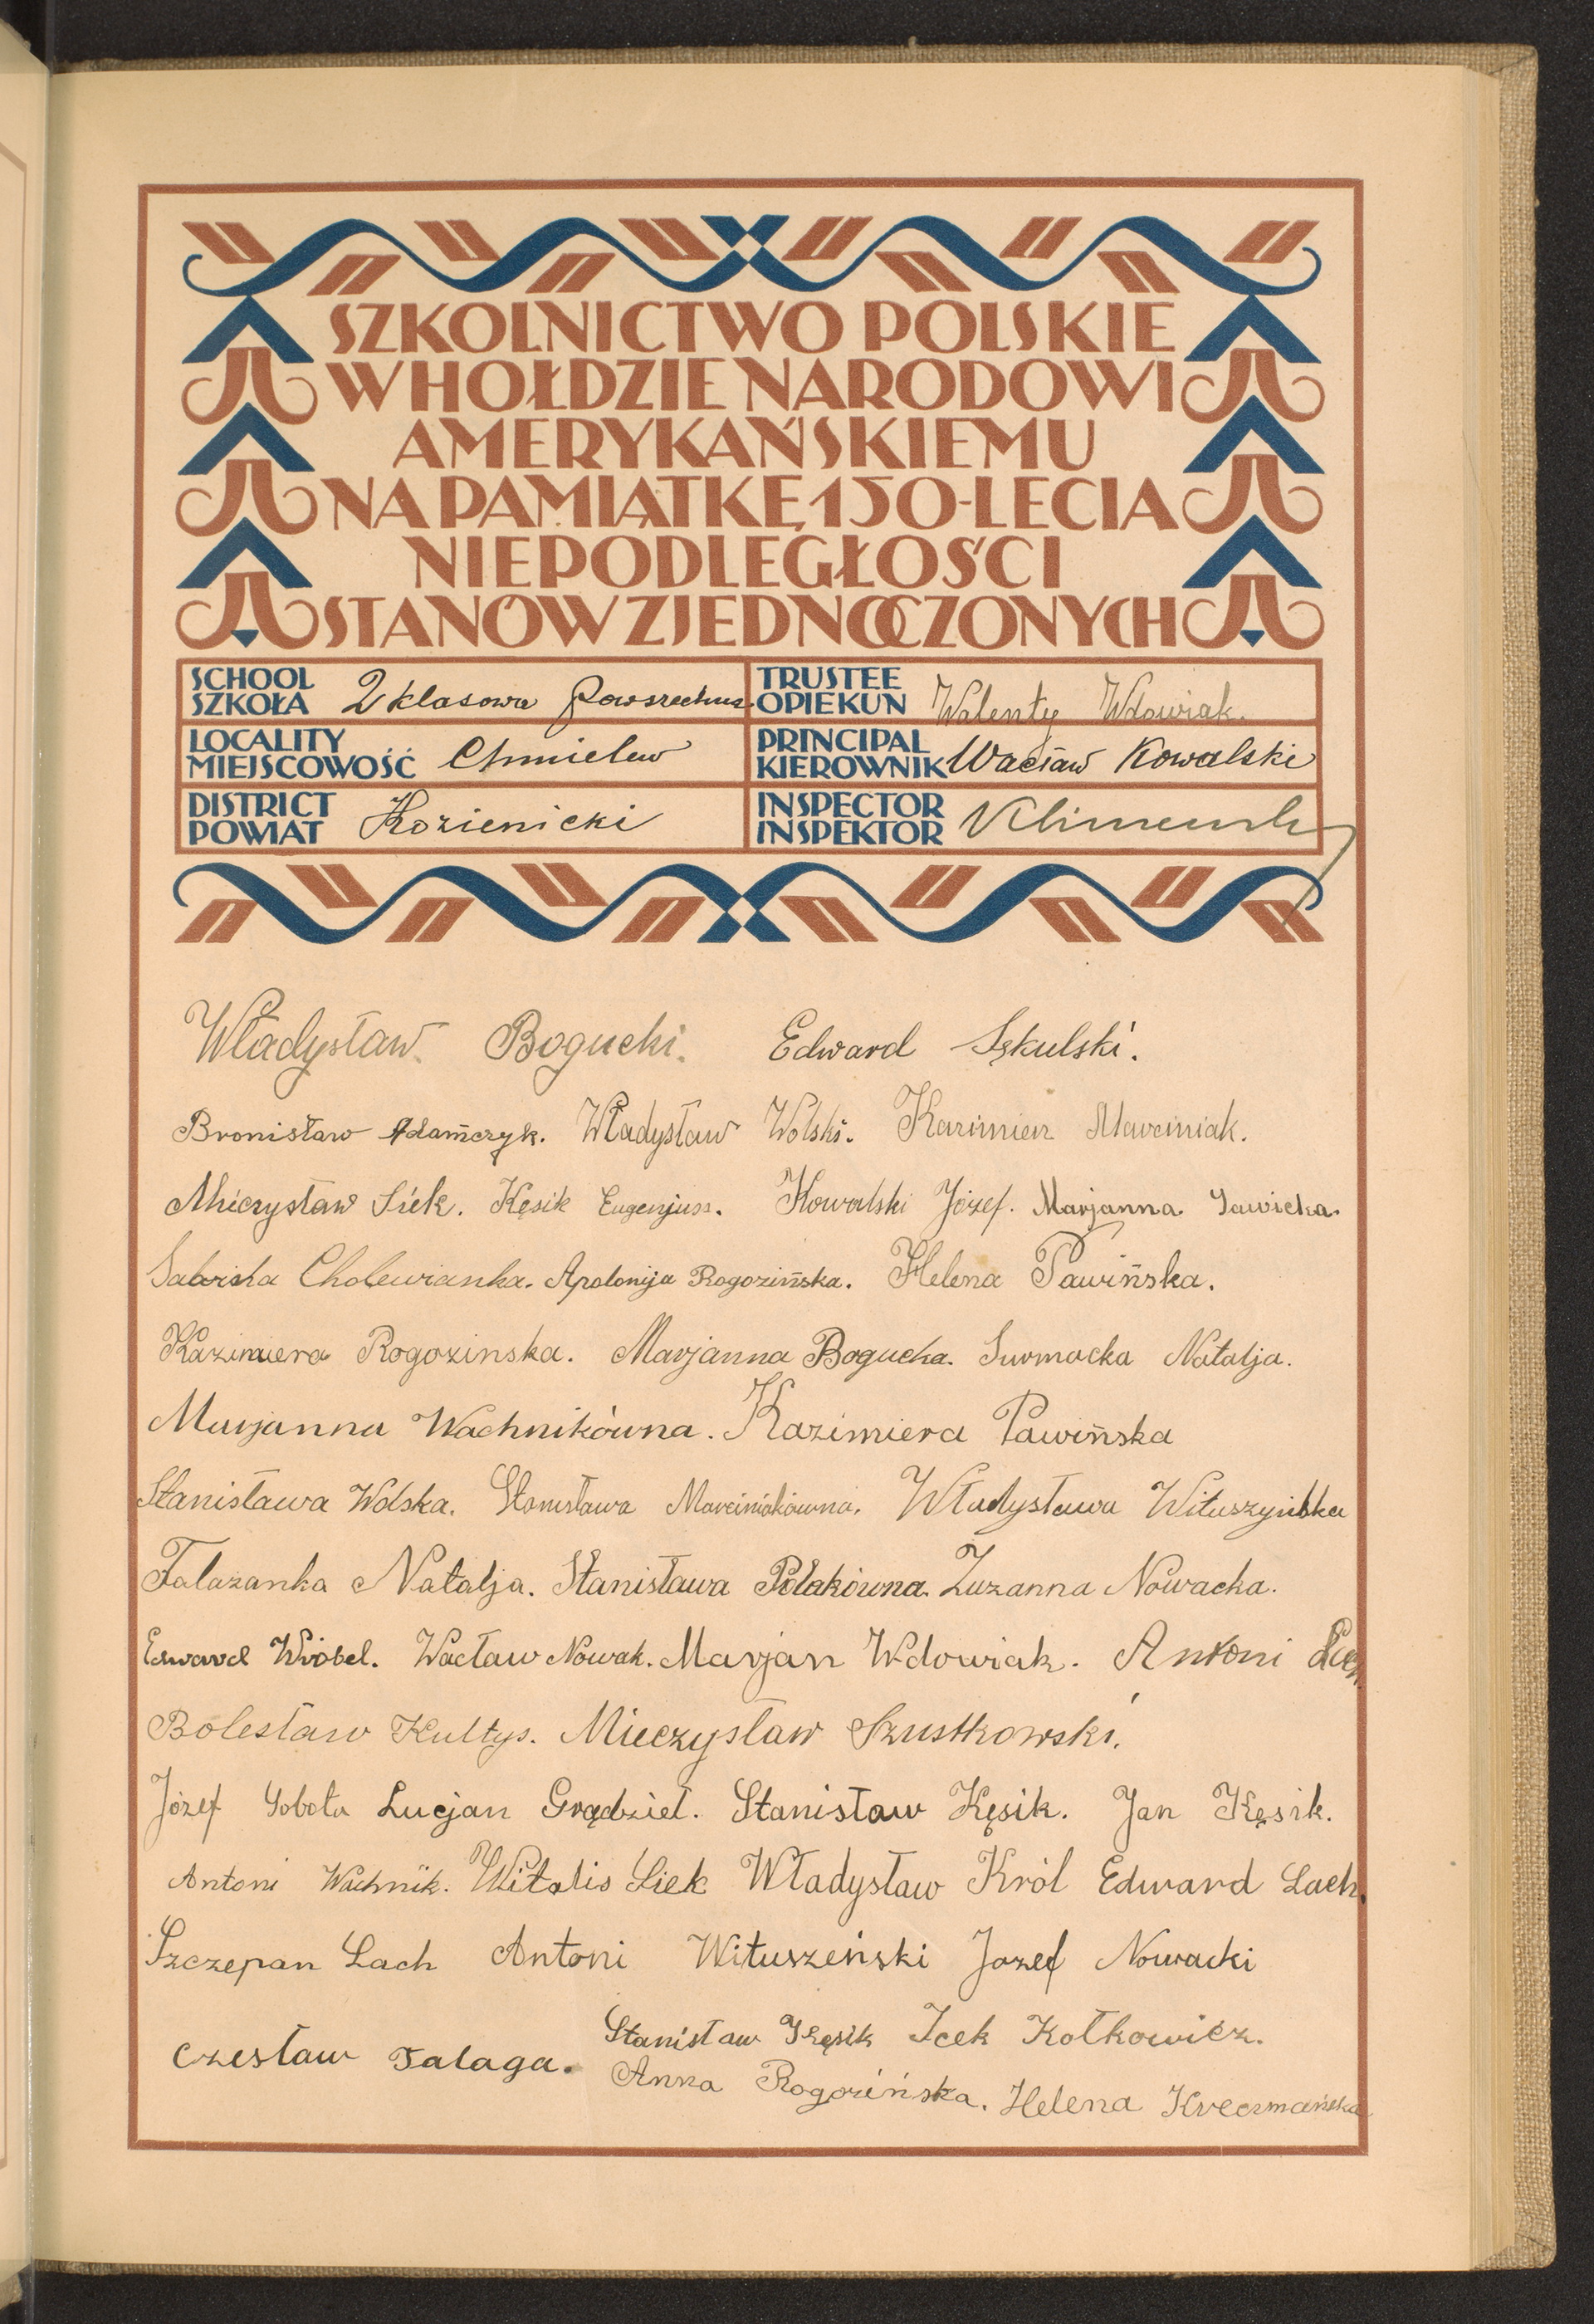 SZKOLNICTWO POLSKIE
W HOŁDZIE NARODOWI
AMERYKAŃSKIEMU
NA PAMIĄTKĘ 150-LECIA
NIEPODLEGŁOŚCI
STANÓW ZJEDNOCZONYCH
SCHOOL
SZKOŁA 2 klasowa Powszechna
TRUSTEE
OPIEKUN Walenty Wdowiak.
LOCALITY
MIEJSCOWOŚĆ Chmielew
PRINCIPAL
KIEROWNIK Wacław Kowalski
DISTRICT
POWIAT Kozienicki
INSPECTOR
INSPEKTOR
Władysław Bogucki. Edward Szkulski.
Bronisław Adamczyk. Władysław Wolski. Kazimierz Marciniak.
Mieczysław Siek. Kęsik Eugenjusz. Kowalski Józef. Marjanna Sawicka.
Cholewianka. Apolonija Rogozińska. Helena Pawińska.
Kazimiera Rogozinska. Marjanna Bogucka. Surmacka Natalja.
Marjanna Wachnikówna. Kazimiera Pawińska
Stanisława Wolska. Stanisława Marciniakówna. Władysława
Talazanka Natalja. Stanisława Polakówna. Zuzanna Nowacka.
Edward Wróbel. Wacław Nowak. Marjan Wdowiak. Antoni
Bolesław Kultys. Mieczysław Szustkowski.
Józef Sobota Lucjan Grądziel. Stanisław Kęsik. Jan Kęsik.
Antoni Wachnik. Witalis Siek Władysław Król Edward Lach.
Szczepan Lach Antoni Wituszeński Jozef Nowacki
Czesław Talaga. Stanisław Kęsik Icek Kołkowicz.
Anna Rogozińska. Helena